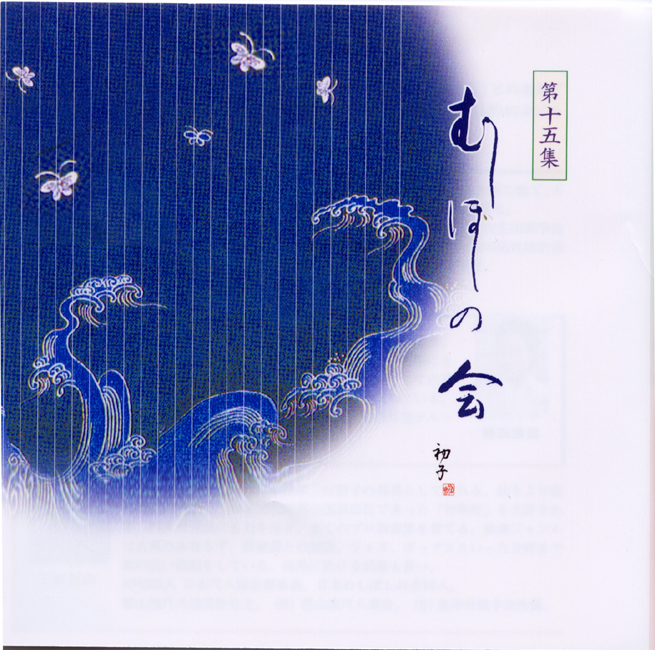 第十五集
むしぼしの会
初子